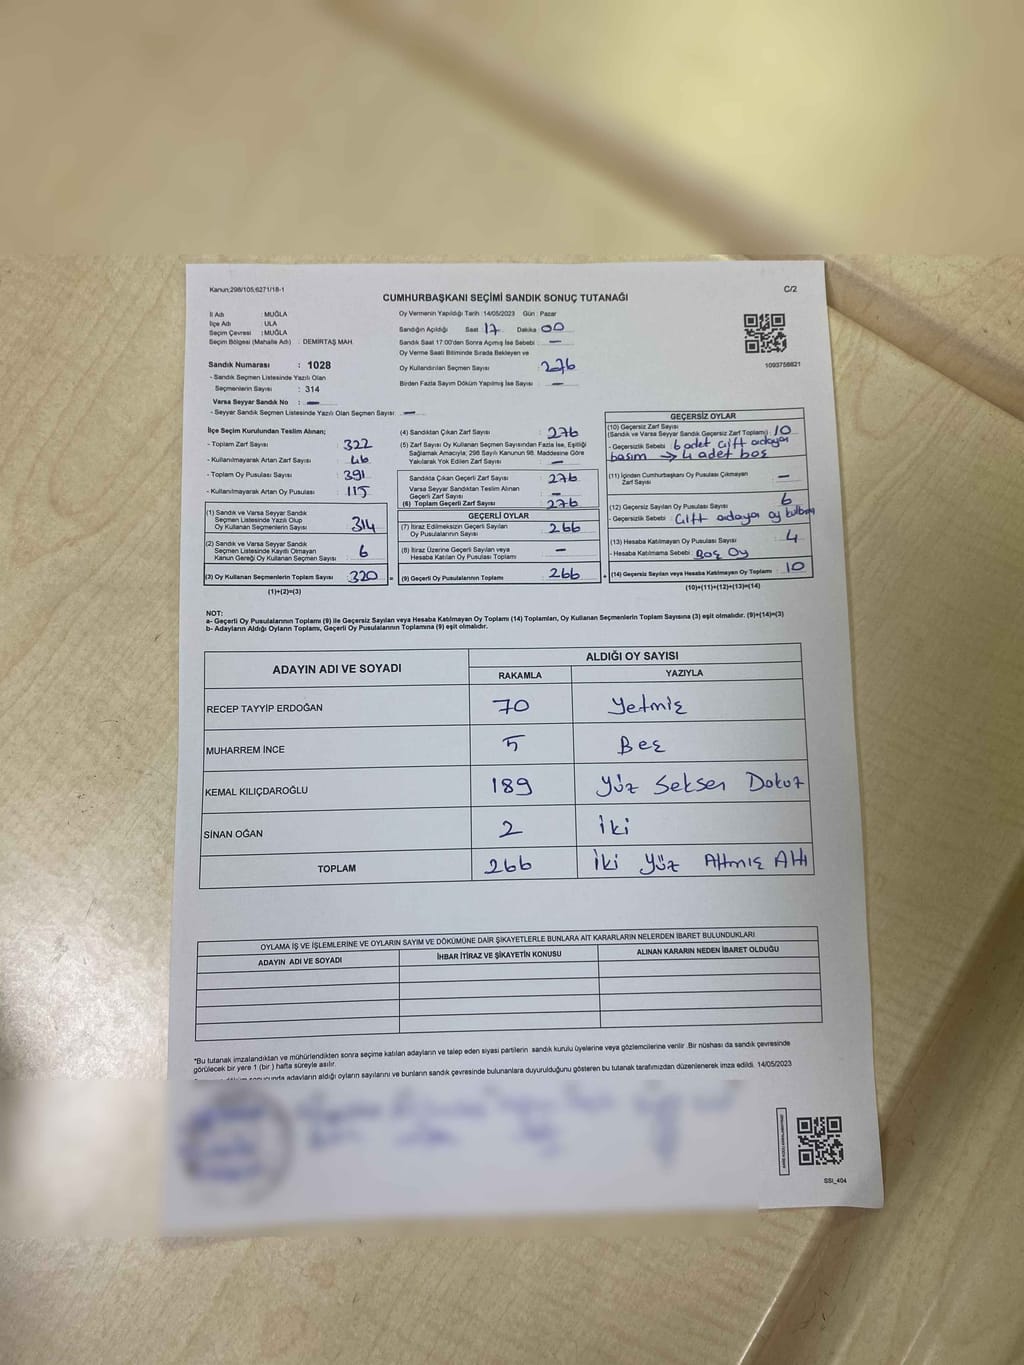 Kanun:298/105;6271/18-1
C/2
CUMHURBAŞKANI SEÇİMİ SANDIK SONUÇ TUTANAĞI
İl Adı : MUĞLA
İlçe Adı : ULA
Seçim Çevresi : MUĞLA
Seçim Bölgesi (Mahalle Adı) : DEMİRTAŞ MAH.
Sandık Numarası : 1028
- Sandık Seçmen Listesinde Yazılı Olan
Seçmenlerin Sayısı : 314
Varsa Seyyar Sandık No : —
- Seyyar Sandık Seçmen Listesinde Yazılı Olan Seçmen Sayısı : —
Oy Vermenin Yapıldığı Tarih : 14/05/2023 Gün : Pazar
Sandığın Açıldığı Saat 17 Dakika 00
Sandık Saat 17:00'den Sonra Açımış İse Sebebi : —
Oy Verme Saati Bitiminde Sırada Bekleyen ve
Oy Kullandırılan Seçmen Sayısı : 276
Birden Fazla Sayım Döküm Yapılmış İse Sayısı : —
1093756621
İlçe Seçim Kurulundan Teslim Alınan;
- Toplam Zarf Sayısı : 322
- Kullanılmayarak Artan Zarf Sayısı : 46
- Toplam Oy Pusulası Sayısı : 391
- Kullanılmayarak Artan Oy Pusulası : 115
(1) Sandık ve Varsa Seyyar Sandık
Seçmen Listesinde Yazılı Olup
Oy Kullanan Seçmenlerin Sayısı 314
(2) Sandık ve Varsa Seyyar Sandık
Seçmen Listesinde Kayıtlı Olmayan
Kanun Gereği Oy Kullanan Seçmen Sayısı : 6
(3) Oy Kullanan Seçmenlerin Toplam Sayısı : 320
(1)+(2)=(3)
(4) Sandıktan Çıkan Zarf Sayısı : 276
(5) Zarf Sayısı Oy Kullanan Seçmen Sayısından Fazla İse, Eşitliği
Sağlamak Amacıyla, 298 Sayılı Kanunun 98. Maddesine Göre
Yakılarak Yok Edilen Zarf Sayısı : —
Sandıkta Çıkan Geçerli Zarf Sayısı : 276
Varsa Seyyar Sandıktan Teslim Alınan
Geçerli Zarf Sayısı : —
(6) Toplam Geçerli Zarf Sayısı : 276
GEÇERLİ OYLAR
(7) İtiraz Edilmeksizin Geçerli Sayılan
Oy Pusulalarının Sayısı : 266
(8) İtiraz Üzerine Geçerli Sayılan veya
Hesaba Katılan Oy Pusulası Toplamı : —
=
(9) Geçerli Oy Pusulalarının Toplamı : 266
+
GEÇERSİZ OYLAR
(10) Geçersiz Zarf Sayısı
(Sandık ve Varsa Seyyar Sandık Geçersiz Zarf Toplamı) : 10
- Geçersizlik Sebebi : 6 adet Çift adaya
basım → 4 adet boş
(11) İçinden Cumhurbaşkanı Oy Pusulası Çıkmayan
Zarf Sayısı : —
(12) Geçersiz Sayılan Oy Pusulası Sayısı : 6
- Geçersizlik Sebebi : Çift adaya oy
(13) Hesaba Katılmayan Oy Pusulası Sayısı : 4
- Hesaba Katılmama Sebebi : Boş Oy
(14) Geçersiz Sayılan veya Hesaba Katılmayan Oy Toplamı : 10
(10)+(11)+(12)+(13)=(14)
NOT:
a- Geçerli Oy Pusulasının Toplamı (9) ile Geçersiz Sayılan veya Hesaba Katılmayan Oy Toplamı (14) Toplamları, Oy Kullanan Seçmenlerin Toplam Sayısına (3) eşit olmalıdır. (9)+(14)=(3)
b- Adayların Aldığı Oyların Toplamı, Geçerli Oy Pusulalarının Toplamına (9) eşit olmalıdır.
ADAYIN ADI VE SOYADI
ALDIĞI OY SAYISI
RAKAMLA YAZIYLA
RECEP TAYYİP ERDOĞAN 70 Yetmiş
MUHARREM İNCE 5 Beş
KEMAL KILIÇDAROĞLU 189 Yüz Seksen Dokuz
SİNAN OĞAN 2 İki
TOPLAM 266 İki Yüz Altmış Altı
OYLAMA İŞ VE İŞLEMLERİNE VE OYLARIN SAYIM VE DÖKÜMÜNE DAİR ŞİKAYETLERLE BUNLARA AİT KARARLARIN NELERDEN İBARET BULUNDUKLARI
ADAYIN ADI VE SOYADI İHBAR İTİRAZ VE ŞİKAYETİN KONUSU ALINAN KARARIN NEDEN İBARET OLDUĞU
*Bu tutanak imzalandıktan ve mühürlendikten sonra seçime katılan adayların ve talep eden siyasi partilerin sandık kurulu üyelerine veya gözlemcilerine verilir .Bir nüshası da sandık çevresinde
görülecek bir yere 1 (bir ) hafta süreyle asılır.
adayların aldığı oyların sayılarını ve bunların sandık çevresinde bulunanlara duyurulduğunu gösteren bu tutanak tarafımızdan düzenlenerek imza edildi. 14/05/2023
SSI_404